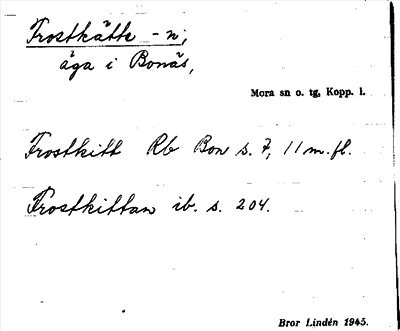 Frostkätte - n;
äga i Bonäs,
Mora sn o. tg, Kopp. l.
Frostkitt Rb Bon s. 7, 11 m.fl.
Frostkittan ib. s. 204.
Bror Lindén 1945.